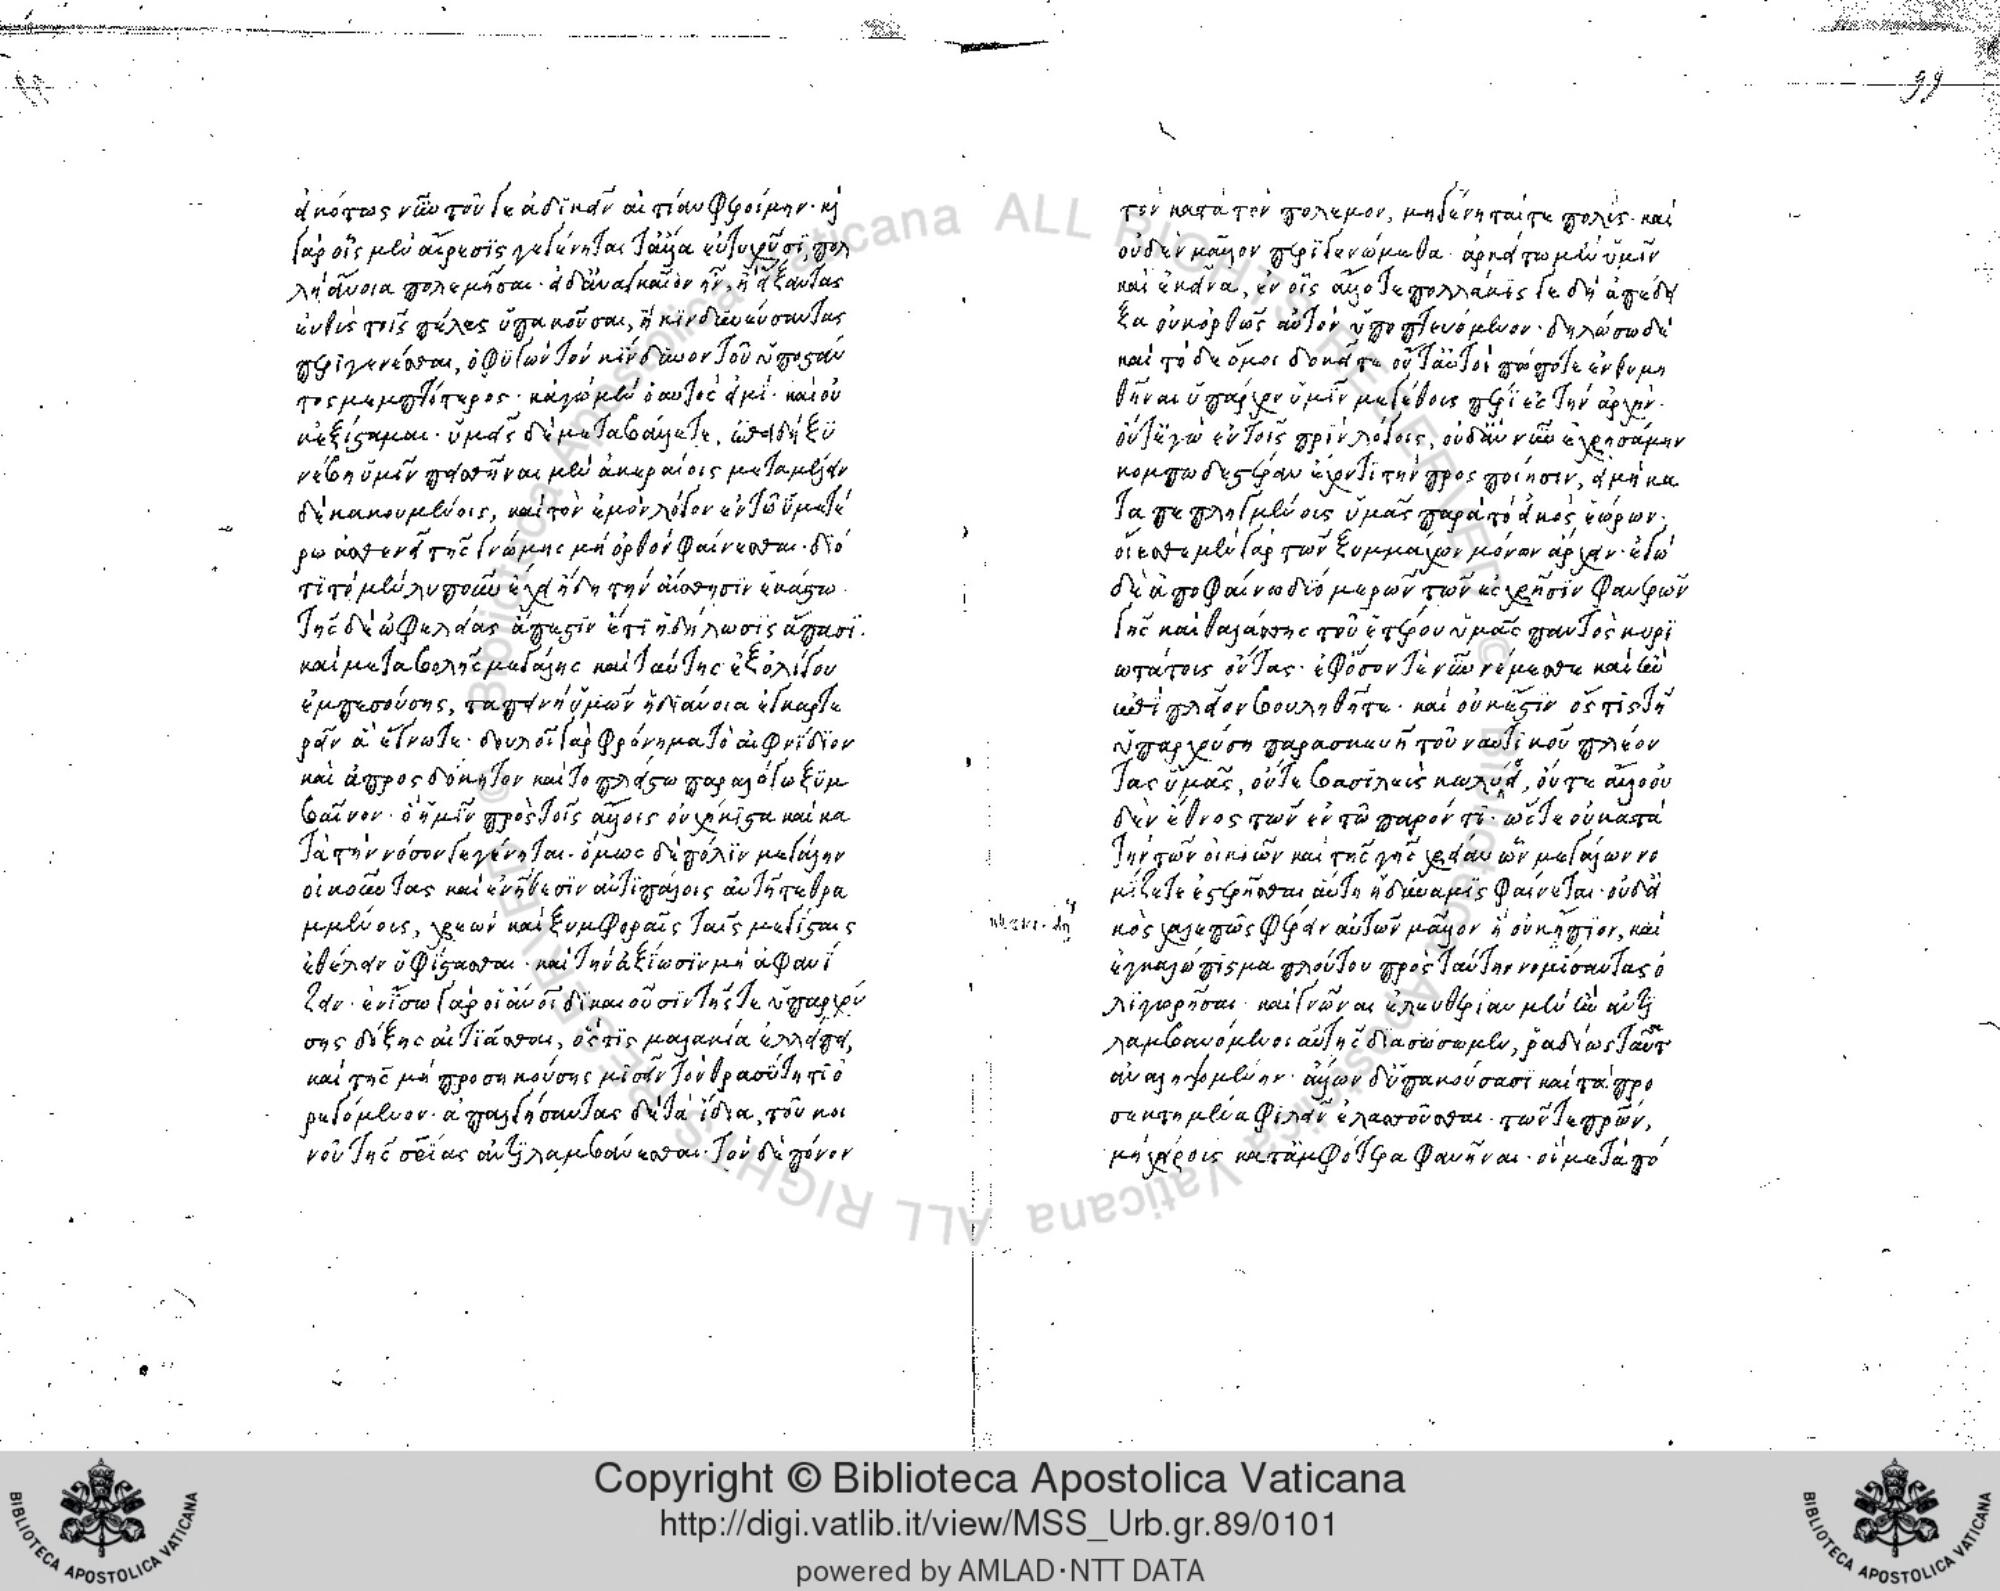 εἰκότως νῦν τοῦ γε ἀδικεῖν αἰτίαν φεροίμην· καὶ
γὰρ οἷς μὲν αἵρεσις γεγένηται τἆλλα εὐτυχοῦσι, πολ
λὴ ἄνοια πολεμῆσαι· εἰ δ' ἀναγκαῖον ἦν, ἢ εἴξαντας
εὐθὺς τοῖς πέλας ὑπακοῦσαι, ἢ κινδυνεύσαντας
περιγενέσθαι, ὁ φυγὼν τὸν κίνδυνον τοῦ ὑποστάν
τος μεμπτότερος· κἀγὼ μὲν ὁ αὐτός εἰμι· καὶ οὐ
κ ἐξίσταμαι· ὑμεῖς δὲ μεταβάλλετε, ἐπειδὴ ξυ
νέβη ὑμῖν πεισθῆναι μὲν ἀκεραίοις μεταμέλειν
δὲ κακουμένοις, καὶ τὸν ἐμὸν λόγον ἐν τῷ ὑμετέ
ρῳ ἀσθενεῖ τῆς γνώμης μὴ ὀρθὸν φαίνεσθαι· διό
τι τὸ μὲν λυποῦν ἔχει ἤδη τὴν αἴσθησιν ἑκάστῳ·
τῆς δὲ ὠφελείας ἄπεστιν ἔτι ἡ δήλωσις ἅπασι·
καὶ μεταβολῆς μεγάλης καὶ ταύτης ἐξ ὀλίγου
ἐμπεσούσης, ταπεινὴ ὑμῶν ἡ διάνοια ἐγκαρτε
ρεῖν ἃ ἔγνωτε· δουλοῖ γὰρ φρόνημα τὸ αἰφνίδιον
καὶ ἀπροσδόκητον καὶ τὸ πλείστῳ παραλόγῳ ξυμ
βαῖνον· ὃ ἡμῖν πρὸς τοῖς ἄλλοις οὐχ ἥκιστα καὶ κα
τὰ τὴν νόσον γεγένηται· ὅμως δὲ πόλιν μεγάλην
οἰκοῦντας καὶ ἐν ἤθεσιν ἀντιπάλοις αὐτῇ τεθρα
μμένοις, χρεὼν καὶ ξυμφοραῖς ταῖς μεγίσταις
ἐθέλειν ὑφίστασθαι· καὶ τὴν ἀξίωσιν μὴ ἀφανί
ζειν· ἐν ἴσῳ γὰρ οἱ ἄνοι δικαιοῦσι τῆς τε ὑπαρχού
σης δόξης αἰτιᾶσθαι, ὅστις μαλακίᾳ ἐλλείπει,
καὶ τῆς μὴ προσηκούσης μισεῖν τὸν θρασύτητι ὀ
ρεγόμενον· ἀπαλγήσαντας δὲ τὰ ἴδια, τοῦ κοι
νοῦ τῆς σρίας ἀντιλαμβάνεσθαι· τὸν δὲ πόνον
99
τὸν κατὰ τὸν πόλεμον, μὴ γένηταί τε πολὺς· καὶ
οὐδὲν μᾶλλον περιγενώμεθα· ἀρκείτω μὲν ὑμῖν
καὶ ἐκεῖνα, ἐν οἷς ἄλλοτε πολλάκις γε δὴ ἀπέδει
ξα οὐκ ὀρθῶς αὐτὸν ὑποπτευόμενον· δηλώσω δὲ
καὶ τόδε ὅ μοι δοκεῖτε οὔτ' αὐτοὶ πώποτε ἐνθυμη
θῆναι ὑπάρχον ὑμῖν μεγέθους πέρι ἐς τὴν ἀρχὴν·
οὔτ' ἐγὼ ἐν τοῖς πρὶν λόγοις, οὐδ' ἂν νῦν ἐχρησάμην
κομπωδεστέραν ἔχοντι τὴν προσποίησιν, εἰ μὴ κα
ταπεπληγμένους ὑμᾶς παρὰ τὸ εἰκὸς ἑώρων·
οἴεσθε μὲν γὰρ τῶν ξυμμάχων μόνων ἄρχειν· ἐγὼ
δὲ ἀποφαίνω δύο μερῶν τῶν ἐς χρῆσιν φανερῶν
γῆς καὶ θαλάσσης τοῦ ἑτέρου ὑμᾶς παντὸς κυρι
ωτάτους ὄντας· ἐφ' ὅσον τε νῦν νέμεσθε καὶ ἢν
ἐπὶ πλεῖον βουληθῆτε· καὶ οὐκ ἔστιν ὅστις τῇ
ὑπαρχούσῃ παρασκευῇ τοῦ ναυτικοῦ πλέον
τας ὑμᾶς, οὔτε βασιλεὺς κωλύσει, οὔτε ἄλλο οὐ
δὲν ἔθνος τῶν ἐν τῷ παρόντι· ὥστε οὐ κατὰ
τὴν τῶν οἰκιῶν καὶ τῆς γῆς χρείαν ὧν μεγάλων νο
μίζετε ἐστερῆσθαι αὕτη ἡ δύναμις φαίνεται· οὐδ' εἰ
κὸς χαλεπῶς φέρειν αὐτῶν μᾶλλον ἢ οὐ κηπίον, καὶ
ἐγκαλλώπισμα πλούτου πρὸς ταύτην νομίσαντας ὀ
λιγωρῆσαι· καὶ γνῶναι ἐλευθερίαν μὲν ἢν ἀντι
λαμβανόμενοι αὐτῆς διασώσωμεν, ῥᾳδίως ταῦτα
ἀναληψομένην· ἄλλων δ' ὑπακούσασι καὶ τὰ προ
σεκτημένα φιλεῖν ἐλασσοῦσθαι· τῶν τε πρων,
μὴ χείρους κατ' ἀμφότερα φανῆναι· οἳ μετὰ πό
Copyright © Biblioteca Apostolica Vaticana
http://digi.vatlib.it/view/MSS_Urb.gr.89/0101
powered by AMLAD·NTT DATA